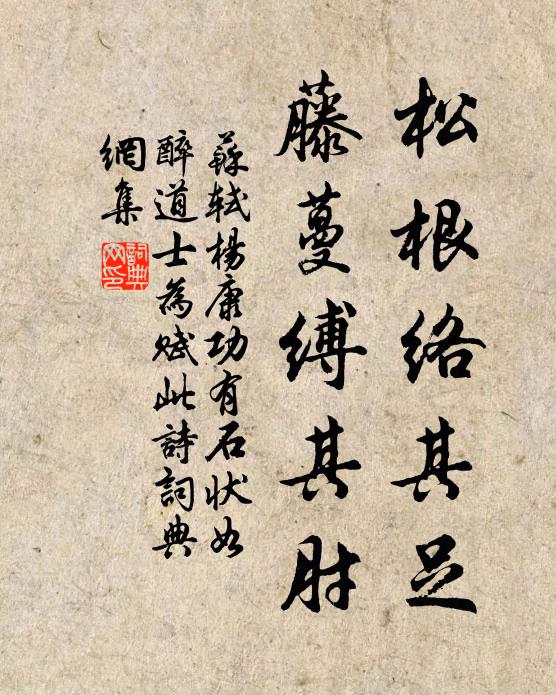 松根絡其足
藤蔓縛其肘
蘇軾楊康功有石狀如
醉道士為賦此詩詞典
網集
詞典網印